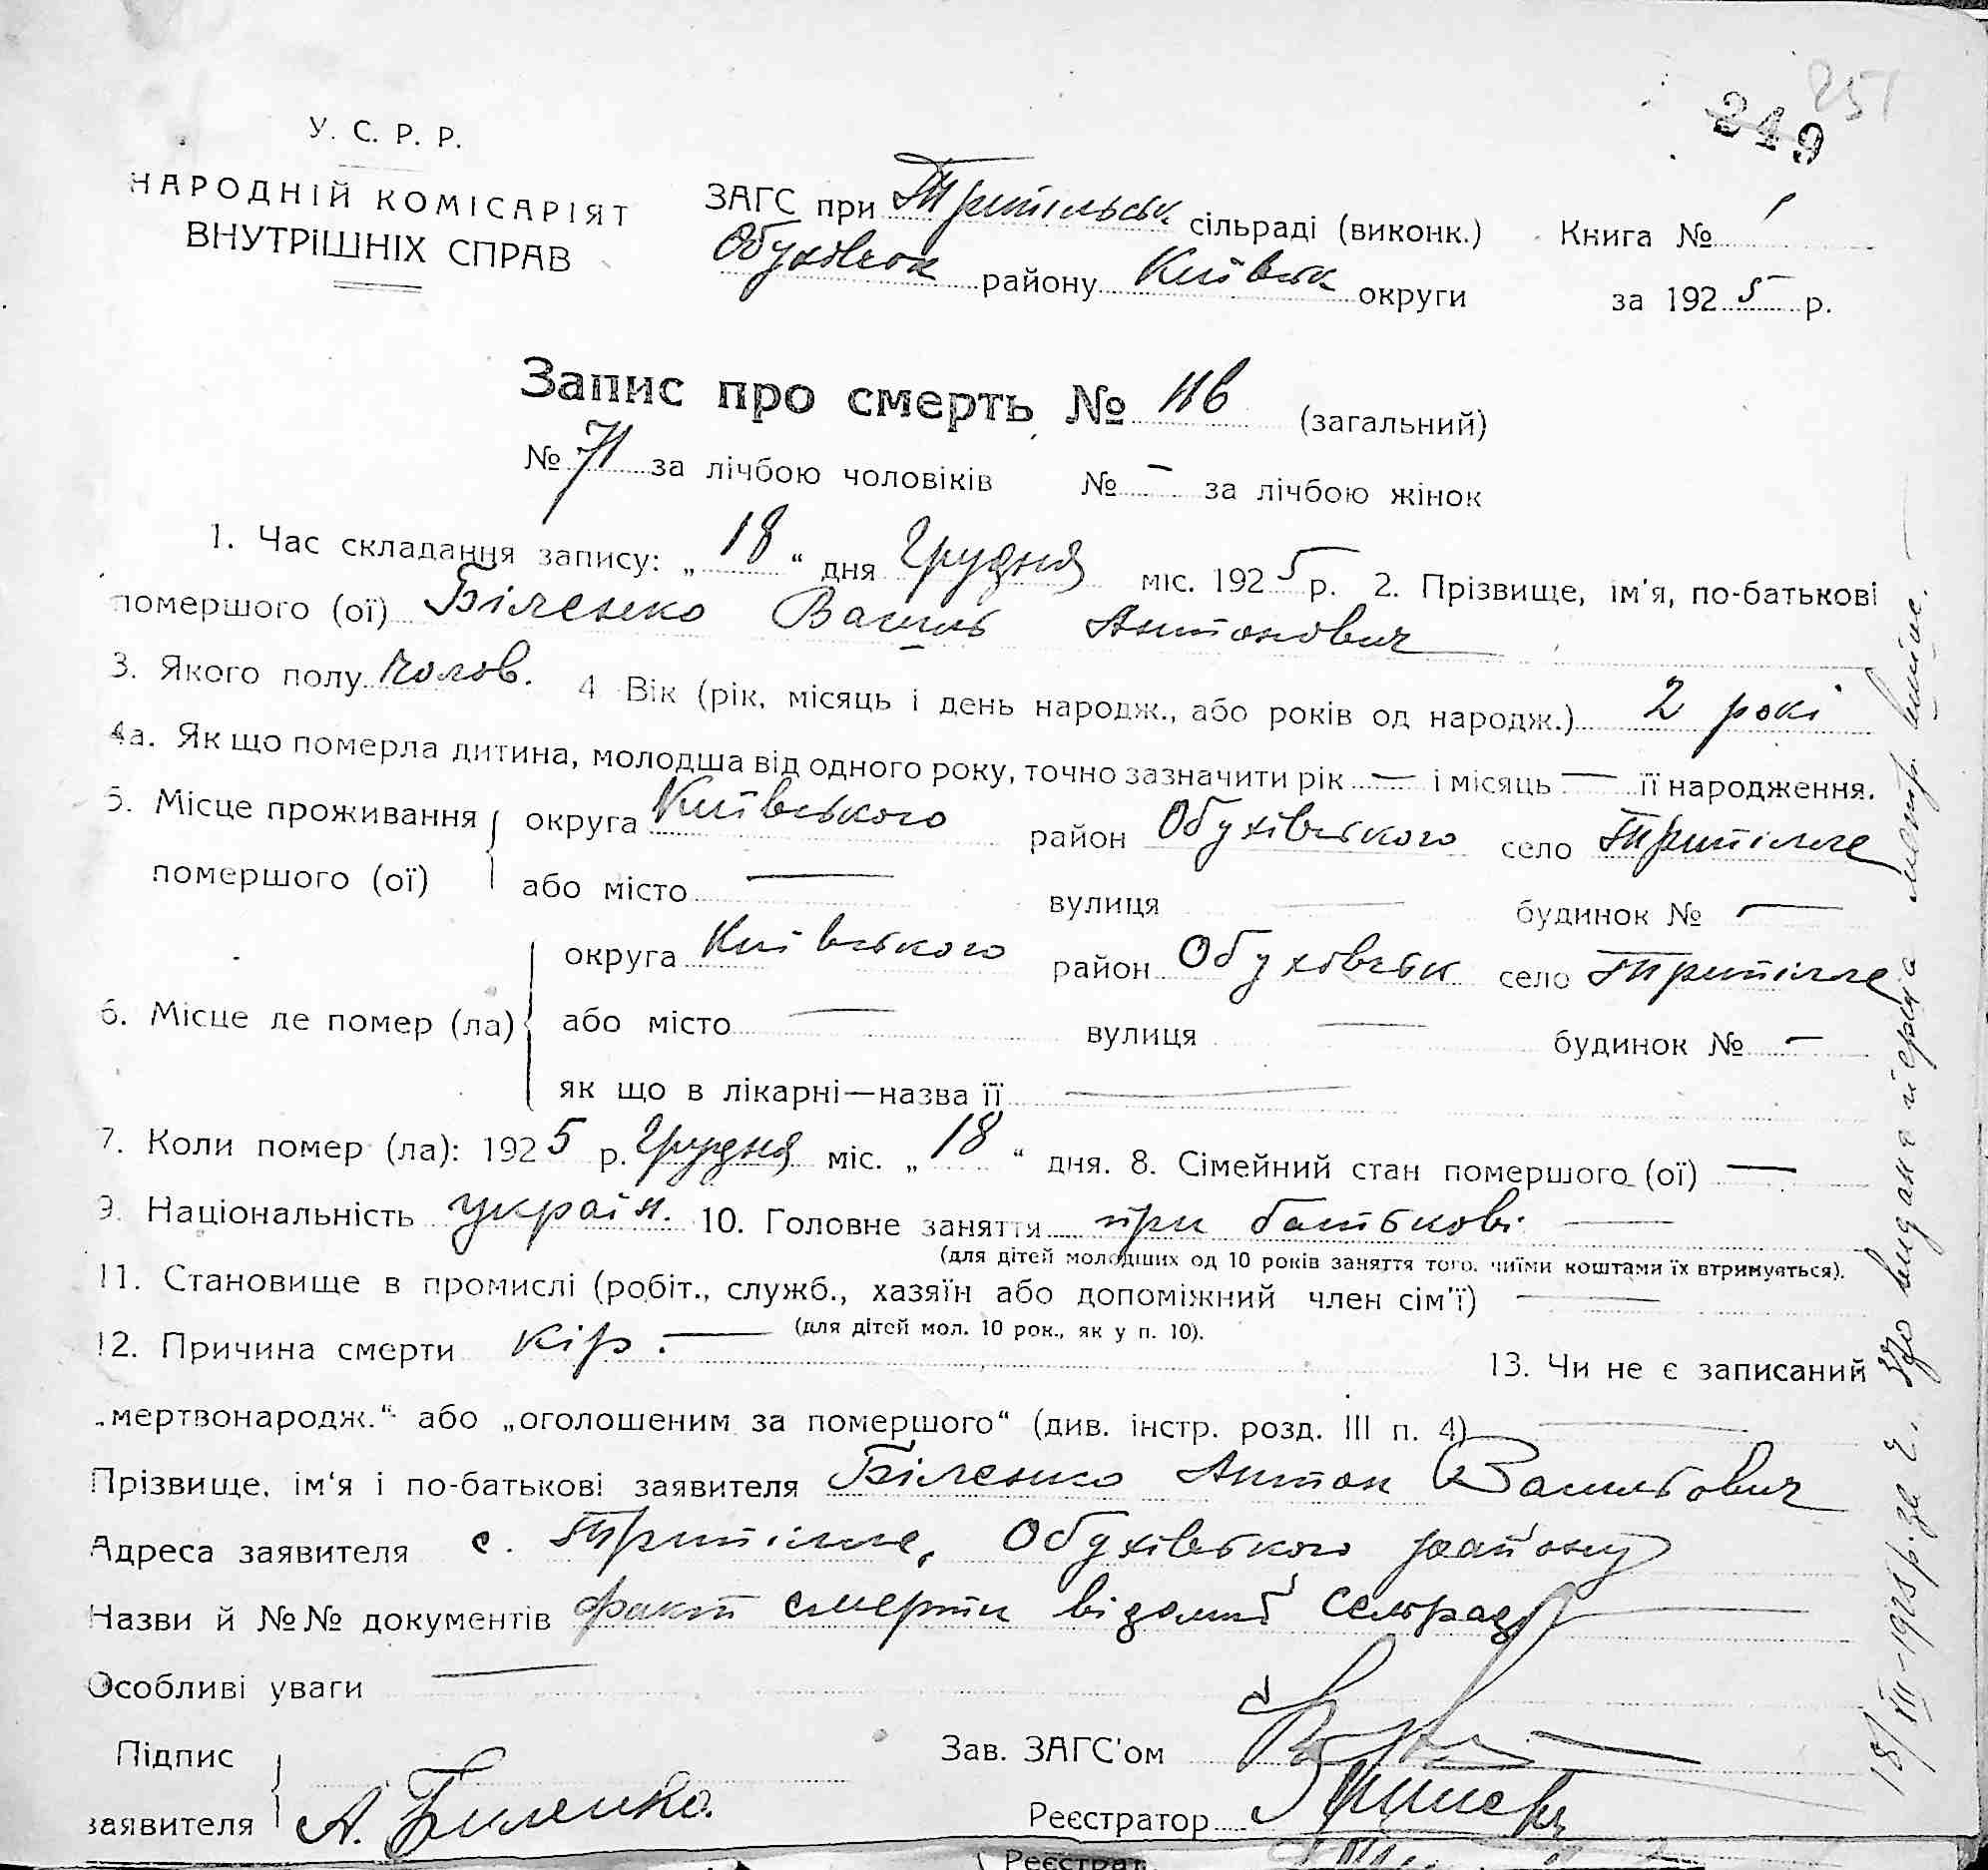 251
249
У. С. Р. Р.
НАРОДНІЙ КОМІСАРІЯТ
ВНУТРІШНІХ СПРАВ
ЗАГС при Трипільськ. сільраді (виконк.) Книга № 1
Обухівськ району Київськ округи за 1925 р.
Запис про смерть № 116 (загальний)
№ 71 за лічбою чоловіків № — за лічбою жінок
1. Час складання запису: „18“ дня Грудня міс. 1925 р. 2. Прізвище, ім'я, по-батькові
помершого (ої) Біленко Василь Антонович
3. Якого полу чолов. 4 Вік (рік, місяць і день народж., або років од народж.) 2 рокі
4а. Як що померла дитина, молодша від одного року, точно зазначити рік — і місяць — її народження.
5. Місце проживання помершого (ої) округа Київського район Обухівського село Трипілле
або місто — вулиця — будинок № —
6. Місце де помер (ла) округа Київського район Обуховськ село Трипілле
або місто — вулиця — будинок № —
як що в лікарні—назва її —
7. Коли помер (ла): 1925 р. Грудня міс. „18“ дня. 8. Сімейний стан помершого (ої) —
9. Національність україн. 10. Головне заняття при батькові —
(для дітей молодших од 10 років заняття того, чиїми коштами їх втримується).
11. Становище в промислі (робіт., служб., хазяїн або допоміжний член сім'ї) —
(для дітей мол. 10 рок., як у п. 10).
12. Причина смерти кір. — 13. Чи не є записаний
„мертвонародж.“ або „оголошеним за помершого“ (див. інстр. розд. III п. 4) —
Прізвище, ім'я і по-батькові заявителя Біленко Антон Васильович
Адреса заявителя с. Трипілле, Обухівського району
Назви й №№ документів факт смерти відомий сельраді —
Особливі уваги —
Підпис заявителя А. Биленко.
Зав. ЗАГС'ом
Реєстратор
Реєстрат.
18/XII-1925 р. за ч. видана перша метр. випис. —